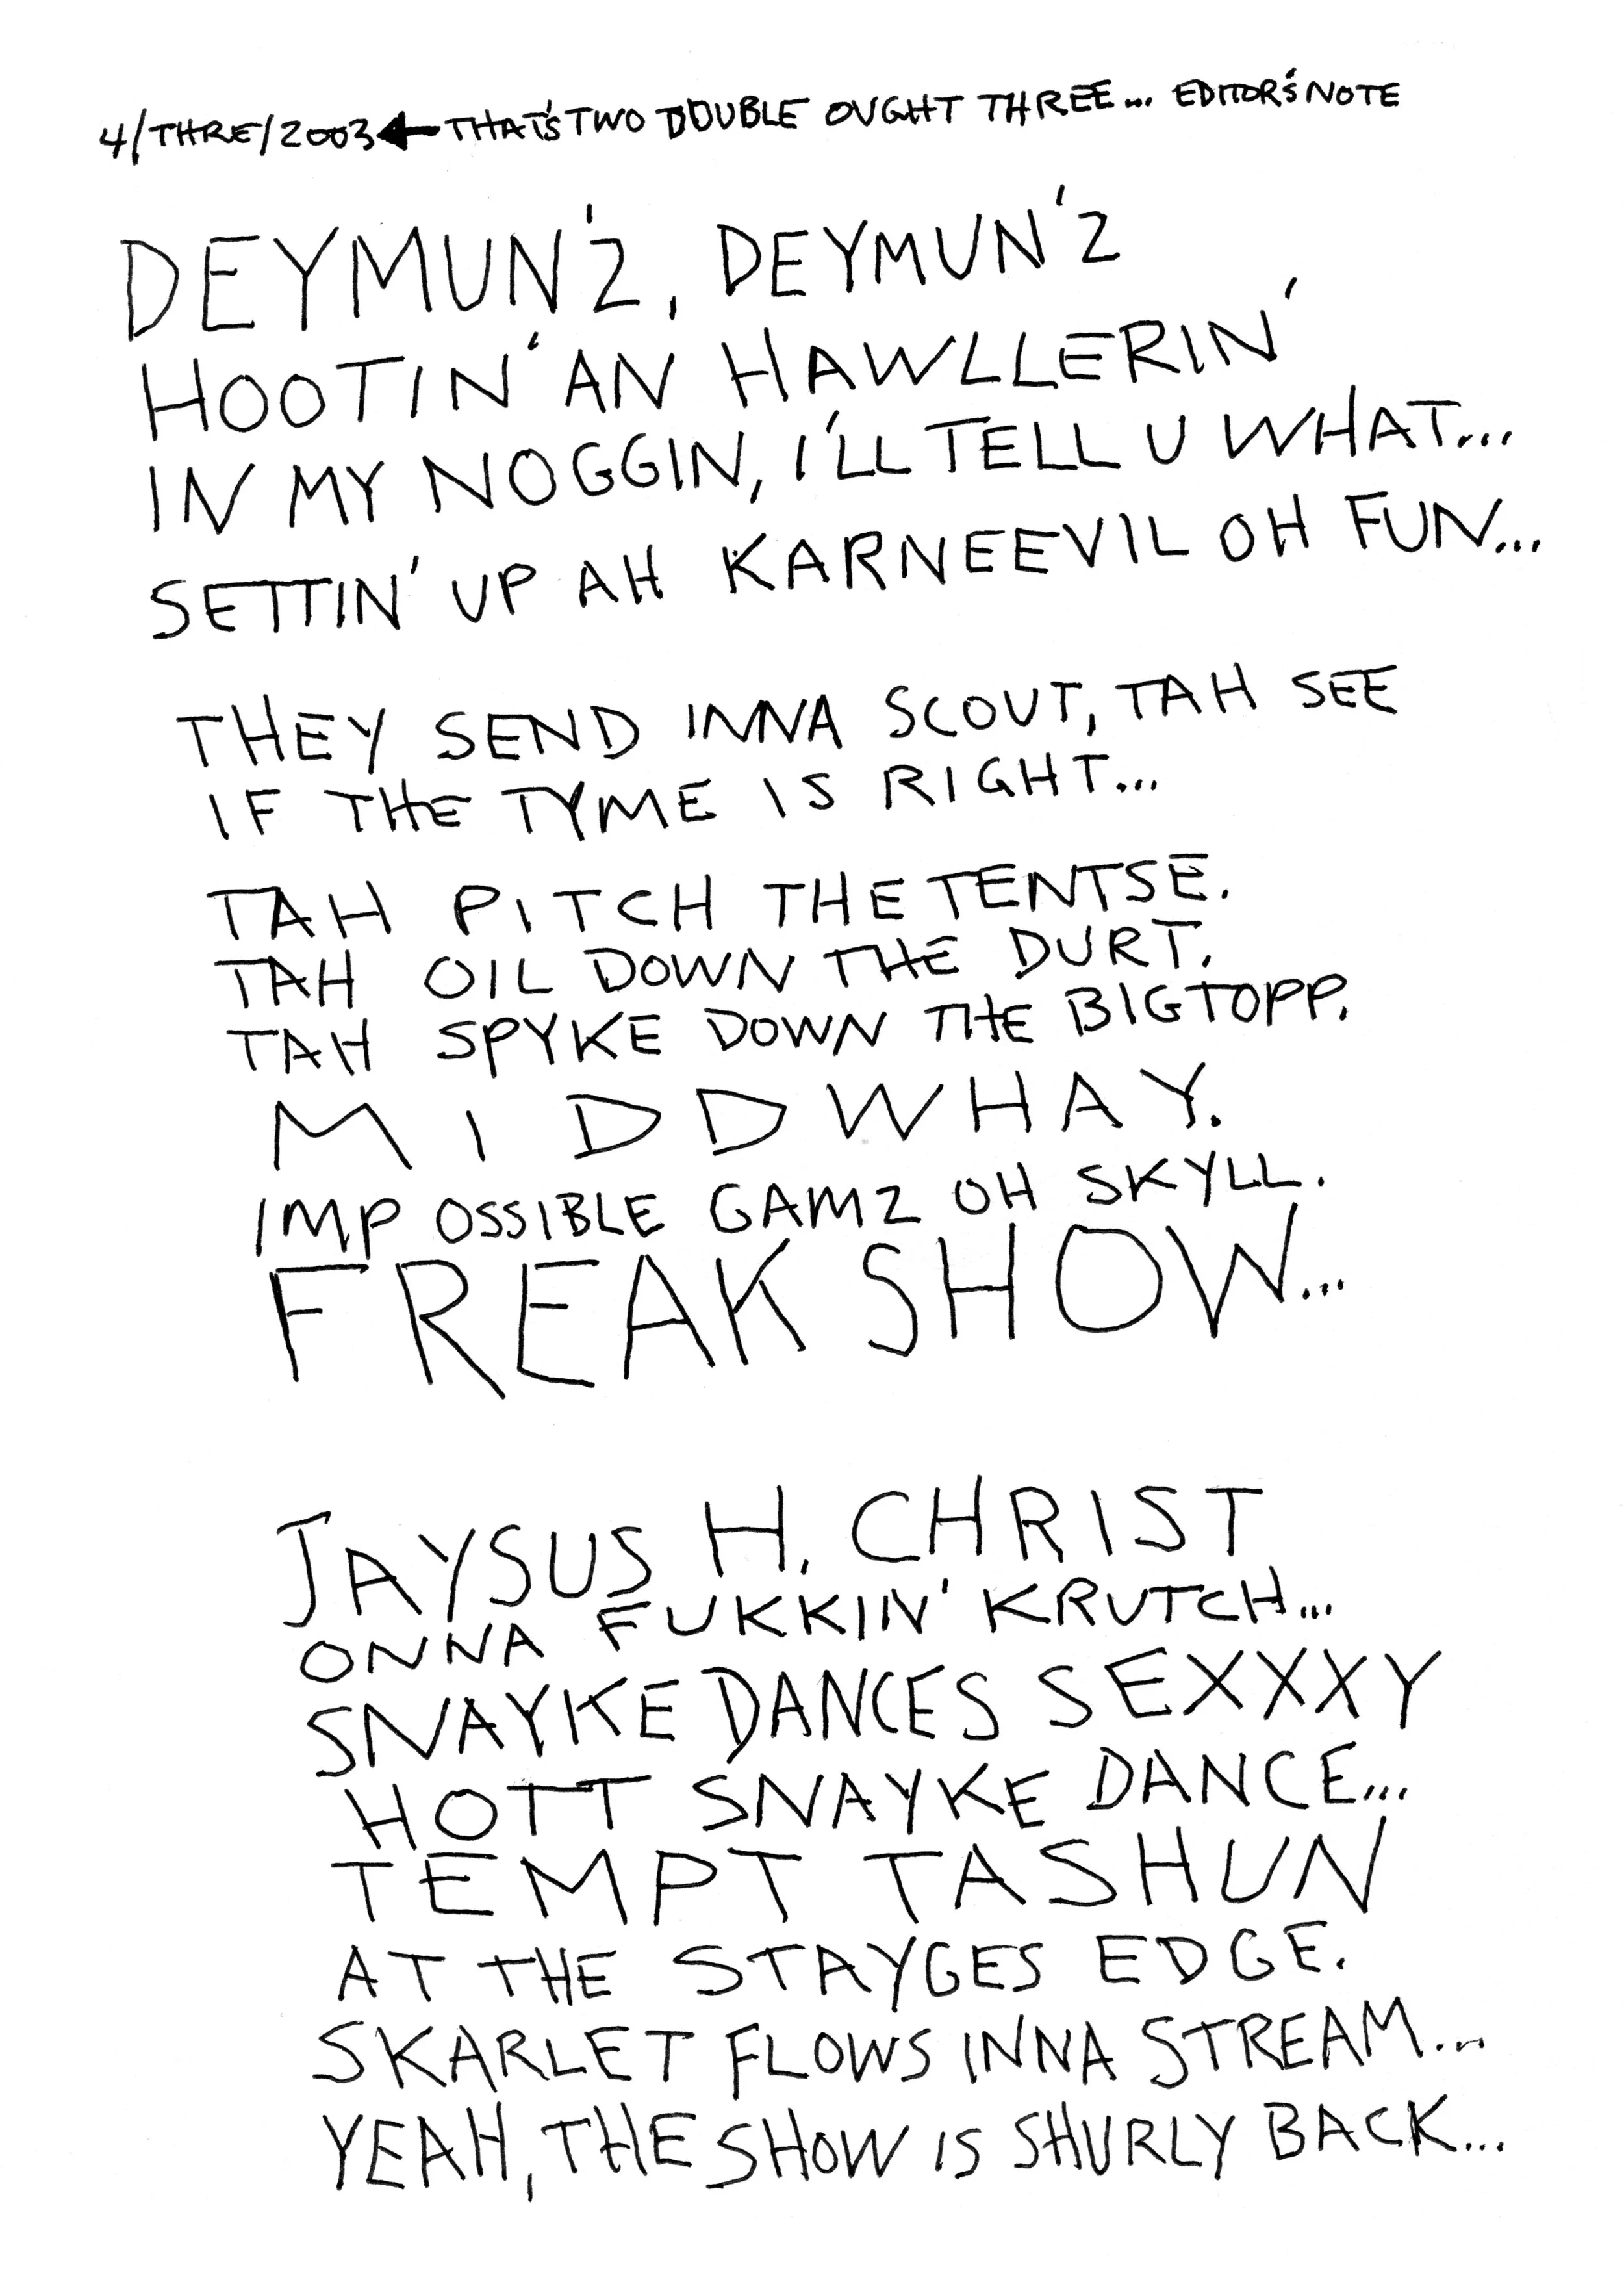 4/THRE/2003 ← THAT'S TWO DOUBLE OUGHT THREE... EDITOR'S NOTE
DEYMUN'Z, DEYMUN'Z
HOOTIN' AN HAWLLERIN'
IN MY NOGGIN, I'LL TELL U WHAT...
SETTIN' UP AH KARNEEVIL OH FUN...
THEY SEND INNA SCOUT, TAH SEE
IF THE TYME IS RIGHT...
TAH PITCH THE TENTSE.
TAH OIL DOWN THE DURT.
TAH SPYKE DOWN THE BIGTOPP.
MIDDWHAY.
IMP OSSIBLE GAMZ OH SKYLL.
FREAK SHOW...
JAYSUS H. CHRIST
ONNA FUKKIN' KRUTCH...
SNAYKE DANCES SEXXXY
HOTT SNAYKE DANCE...
TEMPT TASHUN
AT THE STAYGES EDGE.
SKARLET FLOWS INNA STREAM...
YEAH, THE SHOW IS SHURLY BACK...